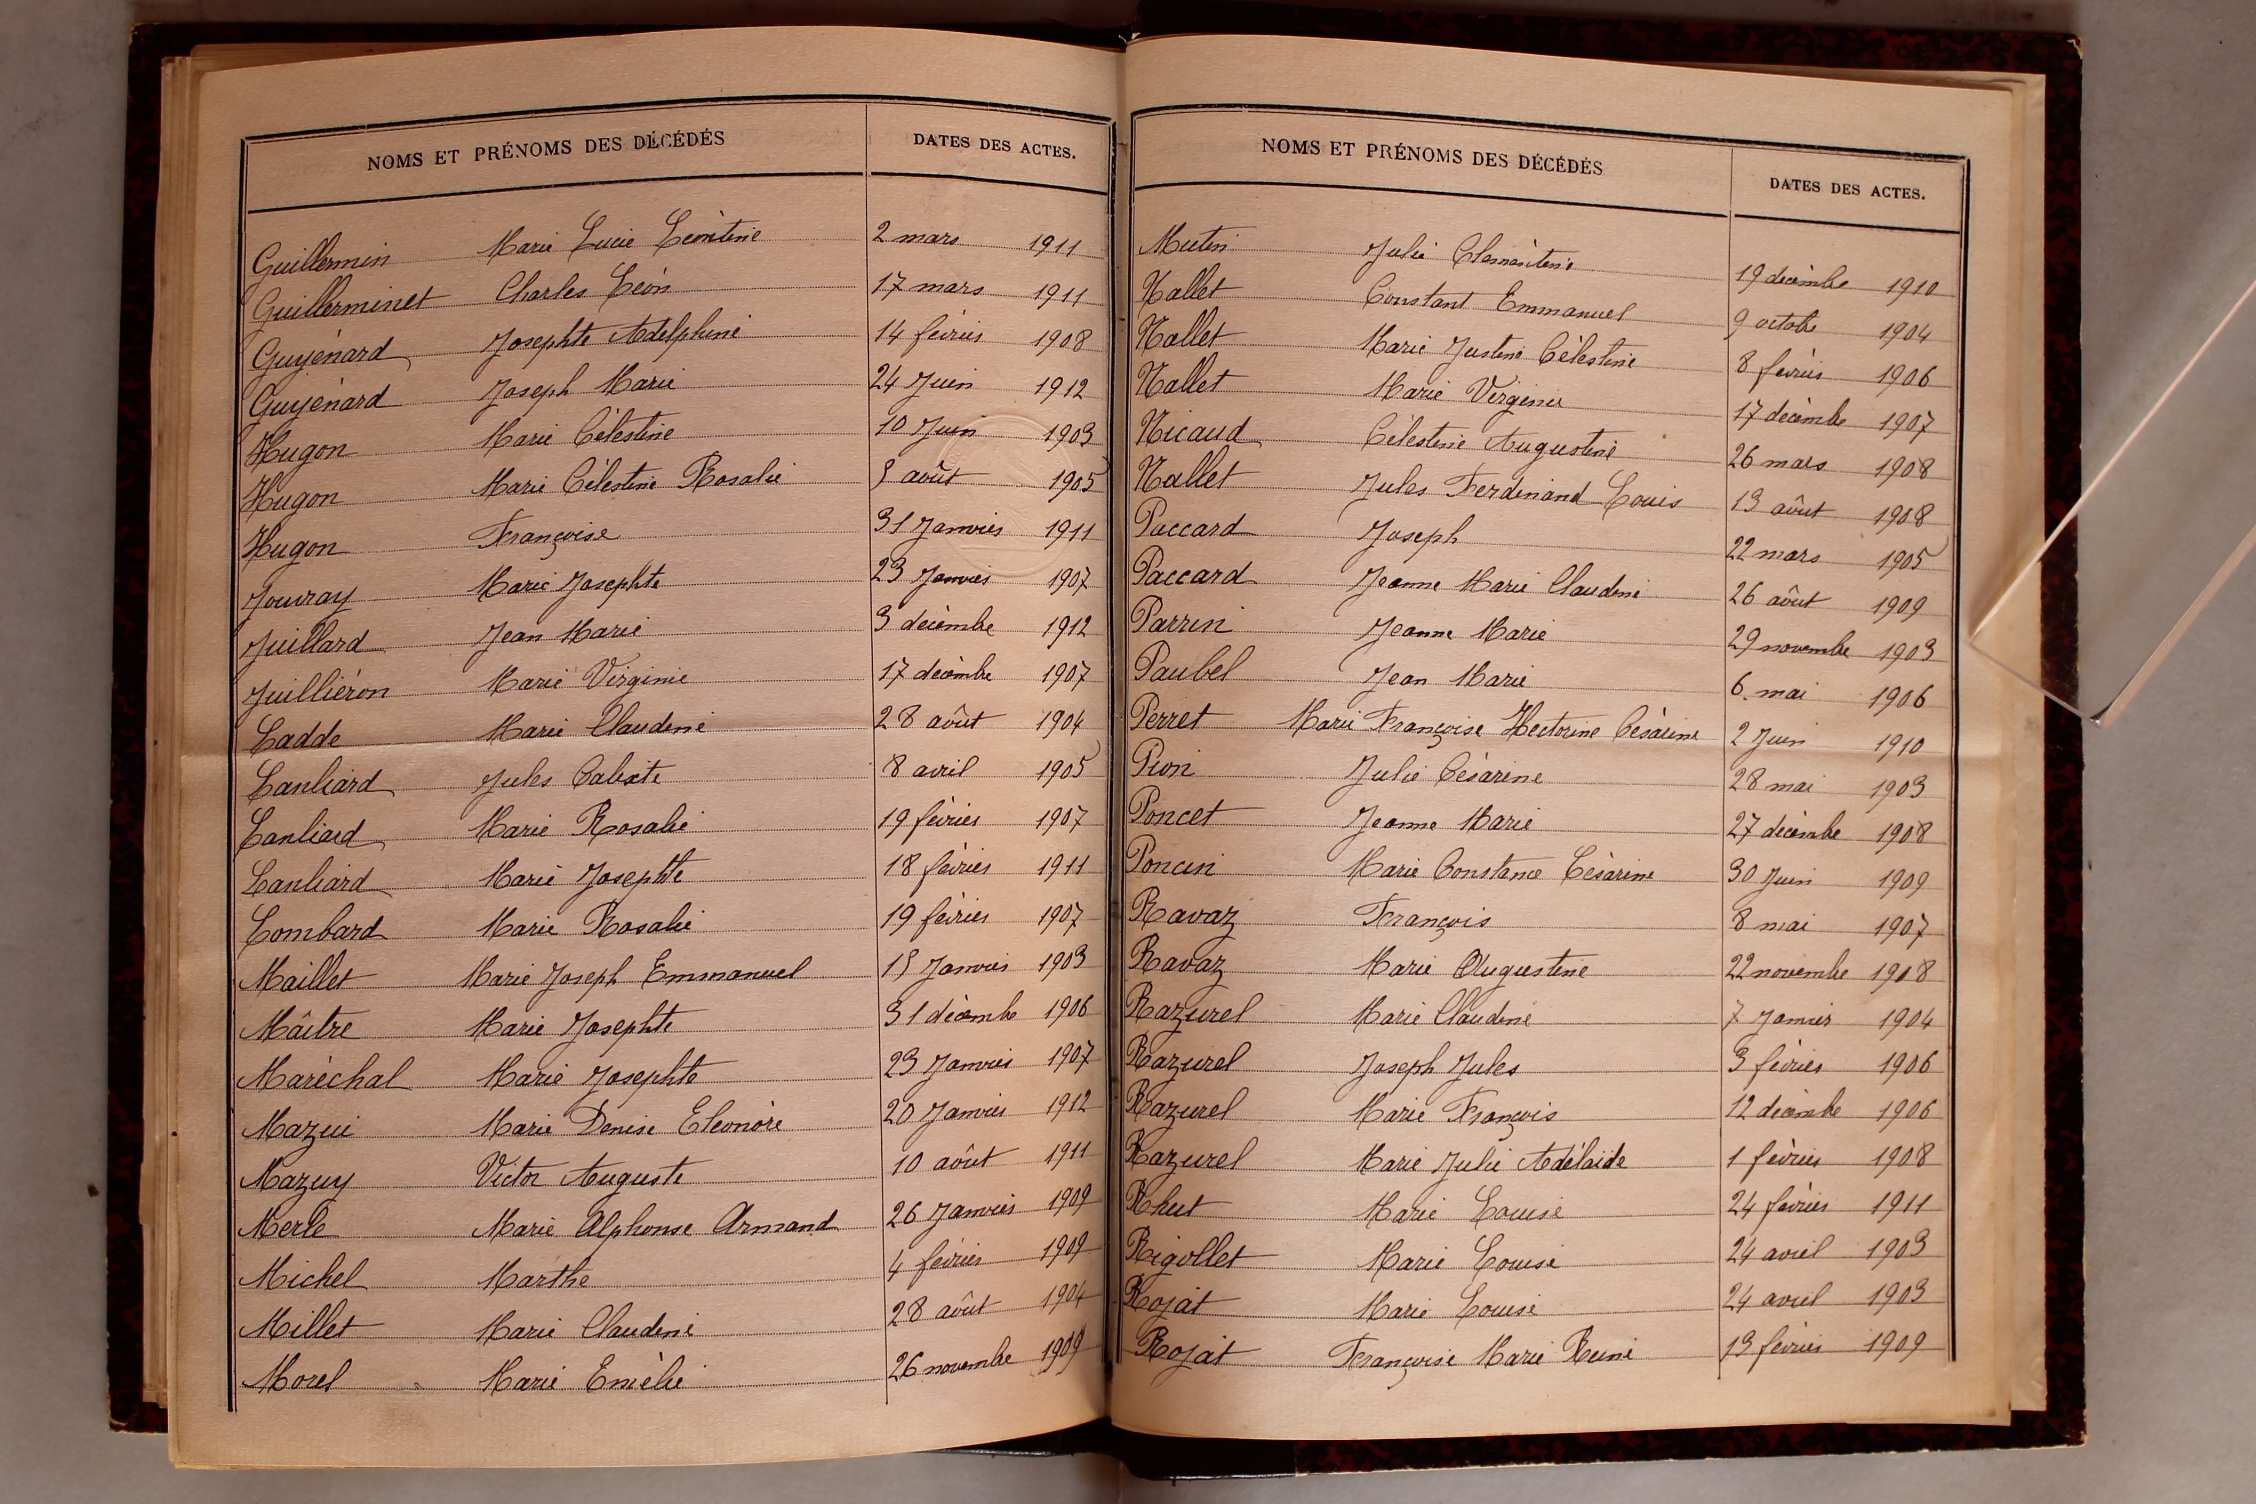 NOMS ET PRÉNOMS DES DÉCÉDÉS DATES DES ACTES.
Guillermin Marie Lucie Léontine 2 mars 1911
Guillerminet Charles Léon 17 mars 1911
Guyénard Josephte Adelphine 14 février 1908
Guyénard Joseph Marie 24 Juin 1912
Hugon Marie Célestine 10 Juin 1903
Hugon Marie Célestine Rosalie août 1905
Hugon Françoise 31 Janvier 1911
Jouvray Marie Josephte 23 Janvier 1907
Juillard Jean Marie 3 décembre 1912
Juilliéron Marie Virginie 17 décembre 1907
Ladde Marie Claudine 28 août 1904
Lanliard Jules Calixte 8 avril 1905
Lanliard Marie Rosalie 19 février 1907
Lanliard Marie Josephte 18 février 1911
Lombard Marie Rosalie 19 février 1907
Maillet Marie Joseph Emmanuel Janvier 1903
Maître Marie Josephte 31 décembre 1906
Maréchal Marie Josephte 23 Janvier 1907
Mazui Marie Denise Eléonore 20 Janvier 1912
Mazuy Victor Auguste 10 août 1911
Merle Marie Alphonse Armand 26 Janvier 1909
Michel Marthe 4 février 1909
Millet Marie Claudine 28 août 1904
Morel Marie Emélie 26 novembre 1909
NOMS ET PRÉNOMS DES DÉCÉDÉS DATES DES ACTES.
Mutin Julie Clémentine 19 décembre 1910
Nallet Constant Emmanuel 9 octobre 1904
Nallet Marie Justine Célestine 8 février 1906
Nallet Marie Virginie 17 décembre 1907
Nicaud Célestine Augustine 26 mars 1908
Nallet Jules Ferdinand Louis 13 août 1908
Paccard Joseph 22 mars 1905
Paccard Jeanne Marie Claudine 26 août 1909
Parrin Jeanne Marie 29 novembre 1903
Paubel Jean Marie 6 mai 1906
Perret Marie Françoise Hectorine Césarine 2 Juin 1910
Pion Julie Césarine 28 mai 1903
Poncet Jeanne Marie 27 décembre 1908
Poncin Marie Constance Césarine 30 Juin 1909
Ravaz François 8 mai 1907
Ravaz Marie Augustine 22 novembre 1908
Razurel Marie Claudine 7 Janvier 1904
Razurel Joseph Jules 3 février 1906
Razurel Marie François 12 décembre 1906
Razurel Marie Julie Adélaïde 1 février 1908
Rhut Marie Louise 24 février 1911
Rigollet Marie Louise 24 avril 1903
Rojat Marie Louise 24 avril 1903
Rojat Françoise Marie Reine 13 février 1909